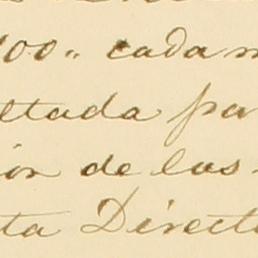 00" cada m
ltada pa
ión de las
ta Direct